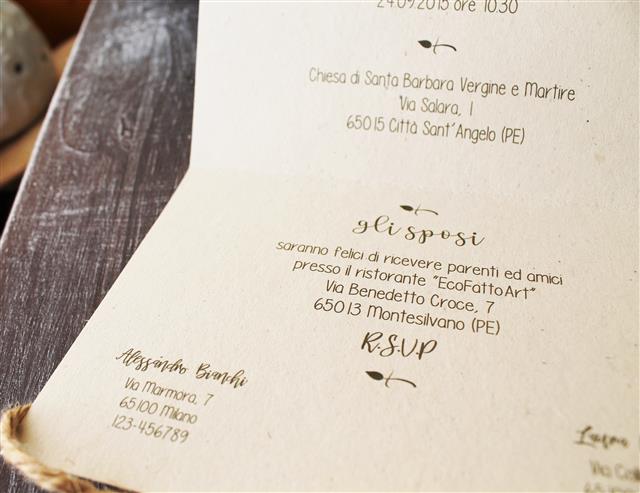 24.09.2015 ore 10.30
Chiesa di Santa Barbara Vergine e Martire
Via Salara, 1
65015 Città Sant'Angelo (PE)
gli sposi
saranno felici di ricevere parenti ed amici
presso il ristorante "EcoFattoArt"
Via Benedetto Croce, 7
65013 Montesilvano (PE)
R.S.V.P
Alessandro Bianchi
Via Marmora, 7
65100 Milano
123-456789
Via